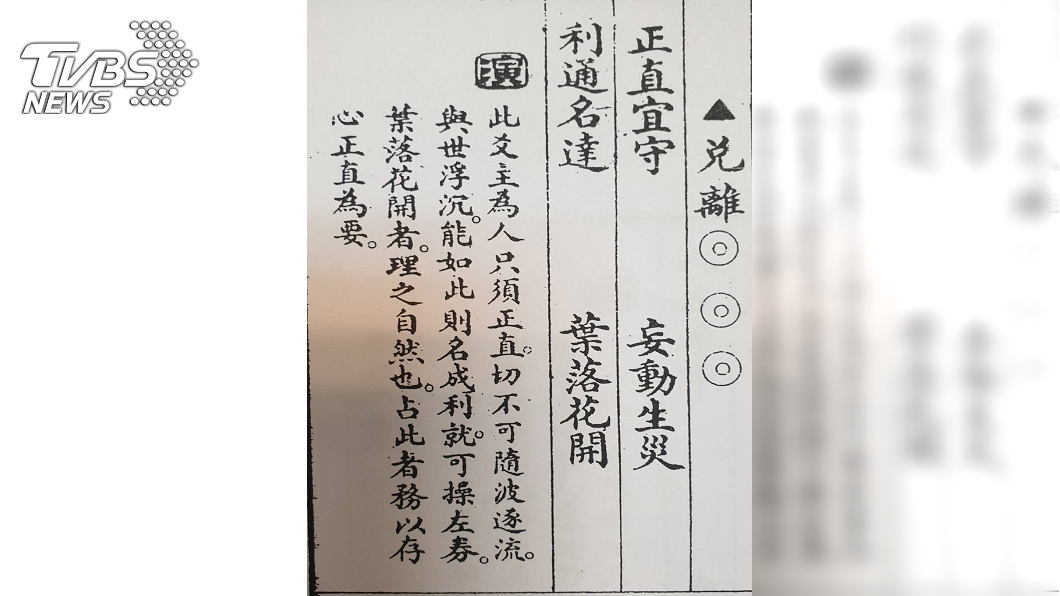 TVBS
NEWS
▲兌離◎◎◎
正直宜守 妄動生災
利通名達 葉落花開
演
此爻主為人只須正直。切不可隨波逐流。
與世浮沉。能如此則名成利就。可操左券。
葉落花開者。理之自然也。占此者務以存
心正直為要。